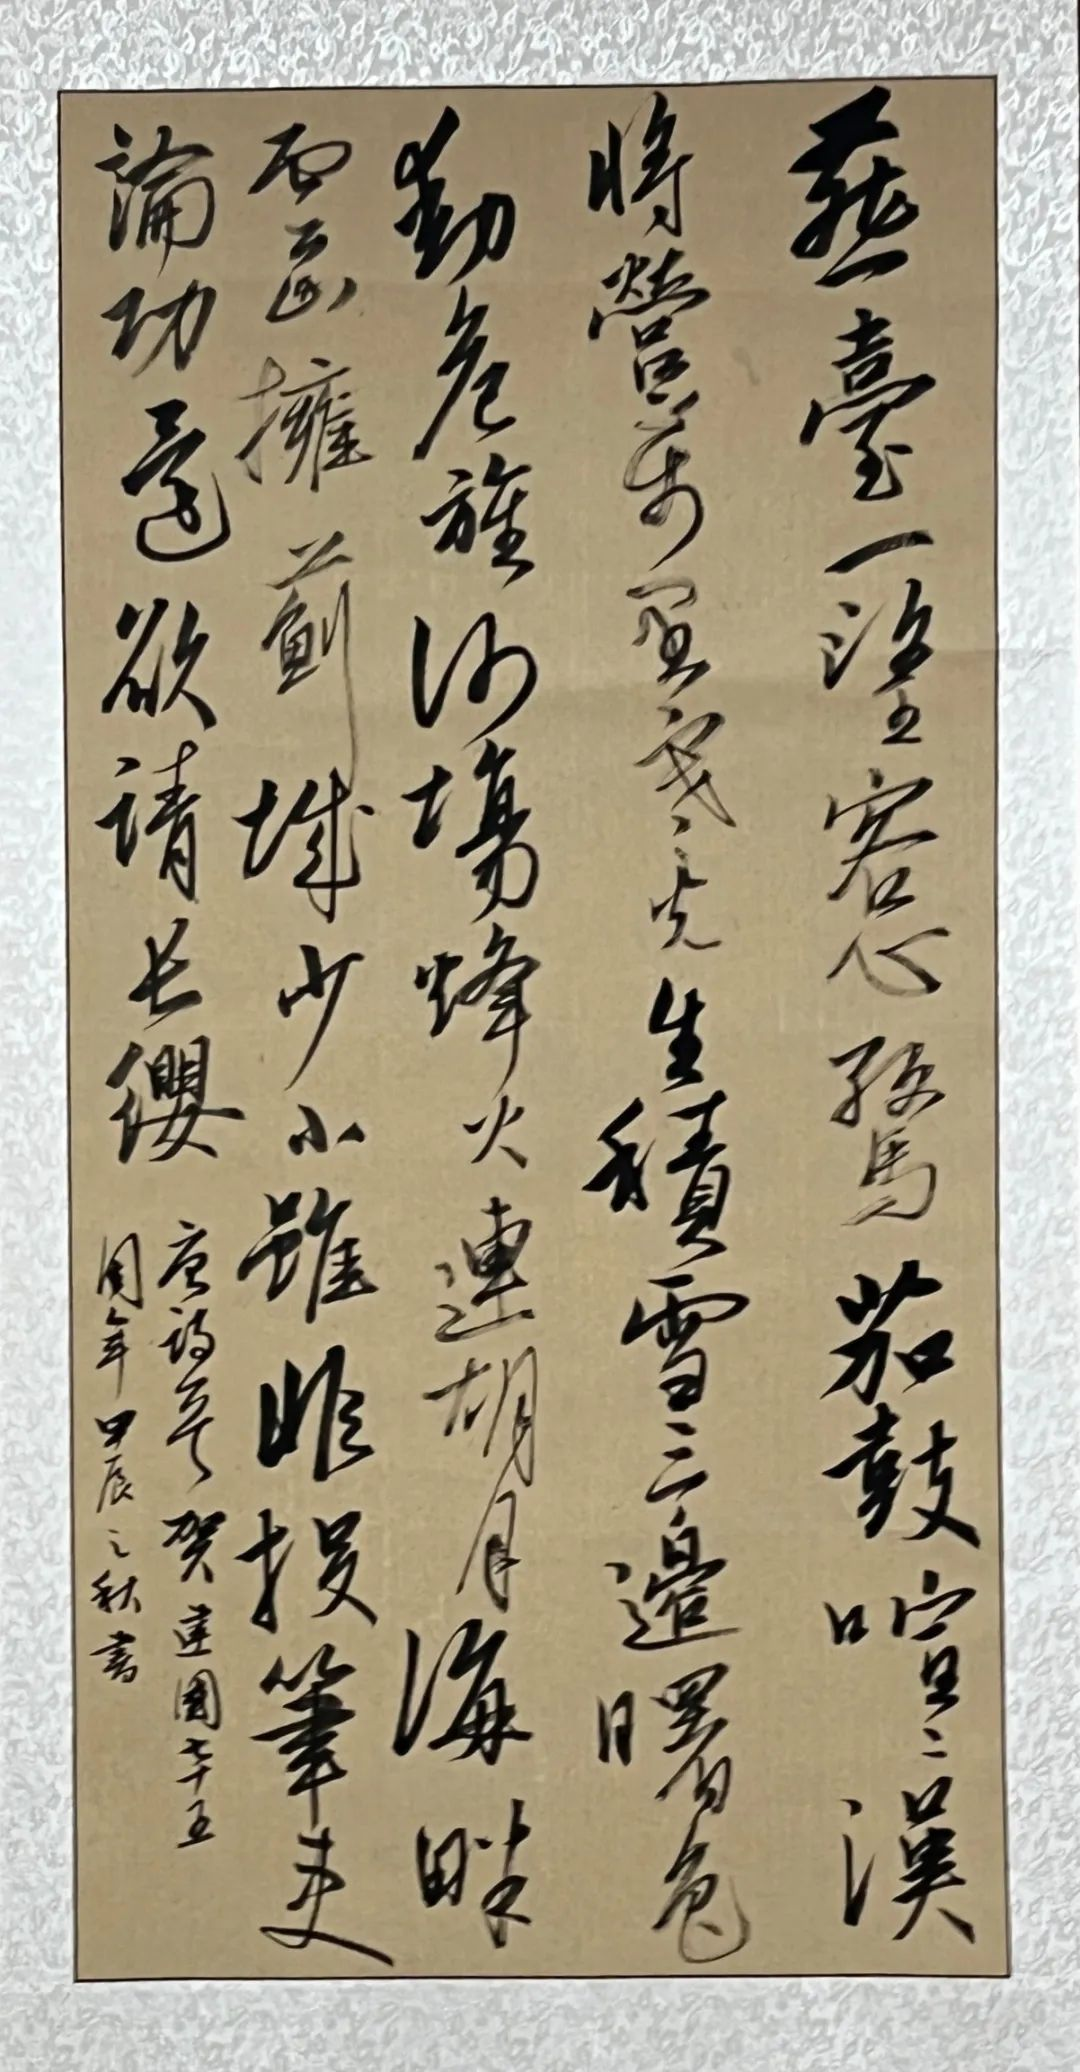 燕臺一望客心驚笳鼓喧〻漢
將營萬里寒光生積雪三邊曙色
動危旌沙場烽火連胡月海畔
雲山擁薊城少小雖非投筆吏
論功還欲請長纓
唐詩一首賀建國七十五
周年甲辰之秋書